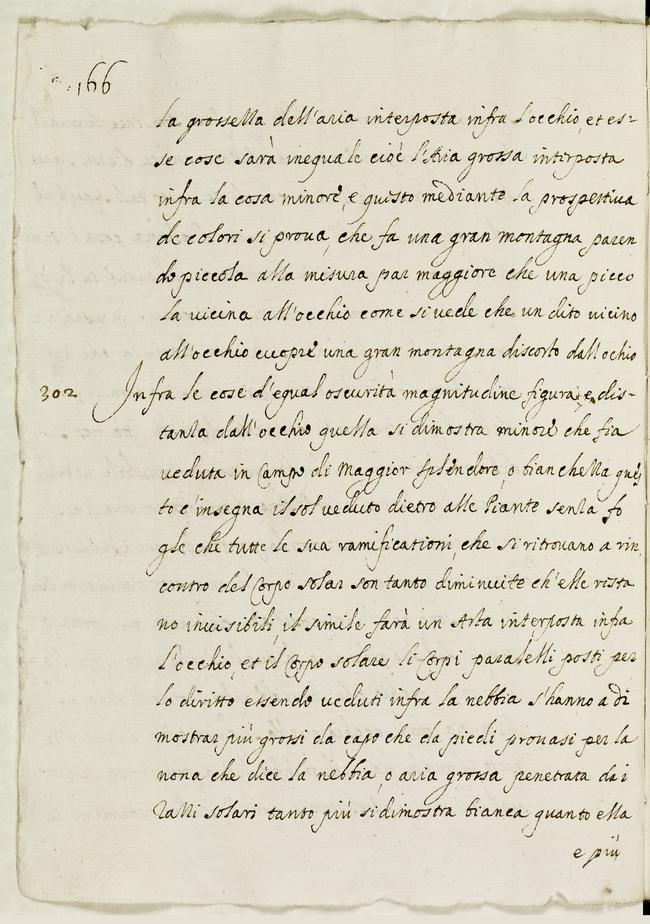 166
la grossezza dell'aria interposta infra l'occhio, et es=
se cose sarà ineguale cioè l'Aria grossa interposta
infra la cosa minore, e questo mediante la prospettiva
de colori si proua, che fa una gran montagna paren
do piccola alla misura par maggiore che una picco
la uicina all'occhio come si uede che un dito uicino
all'occhio cuopre una gran montagna discosto dall'ochio
302 Infra le cose d'egual oscurità magnitudine figura, e dis-
tanza dall'occhio quella si dimostra minore che fia
ueduta in Campo di Maggior splendore, o bianchezza ques
to c'insegna il sol ueduto dietro alle Piante senza fo
glie che tutte le sua ramificationi, che si ritrouano a rin
contro del Corpo solar son tanto diminuite ch'elle resta
no inuisibili, il simile farà un Asta interposta infra
l'occhio, et il Corpo solare li Corpi paralelli posti per
lo diritto essendo ueduti infra la nebbia s'hanno a di
mostrar più grossi da capo che da piedi prouasi per la
nona che dice la nebbia, o aria grossa penetrata da i
razzi solari tanto più si dimostra bianca quanto ella
e più